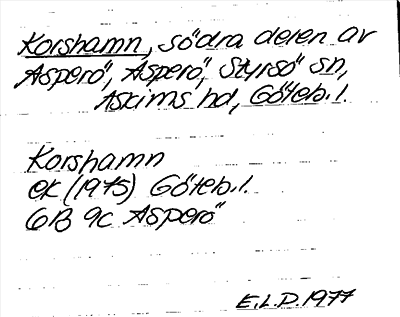 Korshamn, södra delen av
Asperö, Asperö, Styrsö sn,
Askims hd, Göteb. l.
Korshamn
ek (1975) Göteb. l.
6B 9c Asperö
E.L.P. 1977